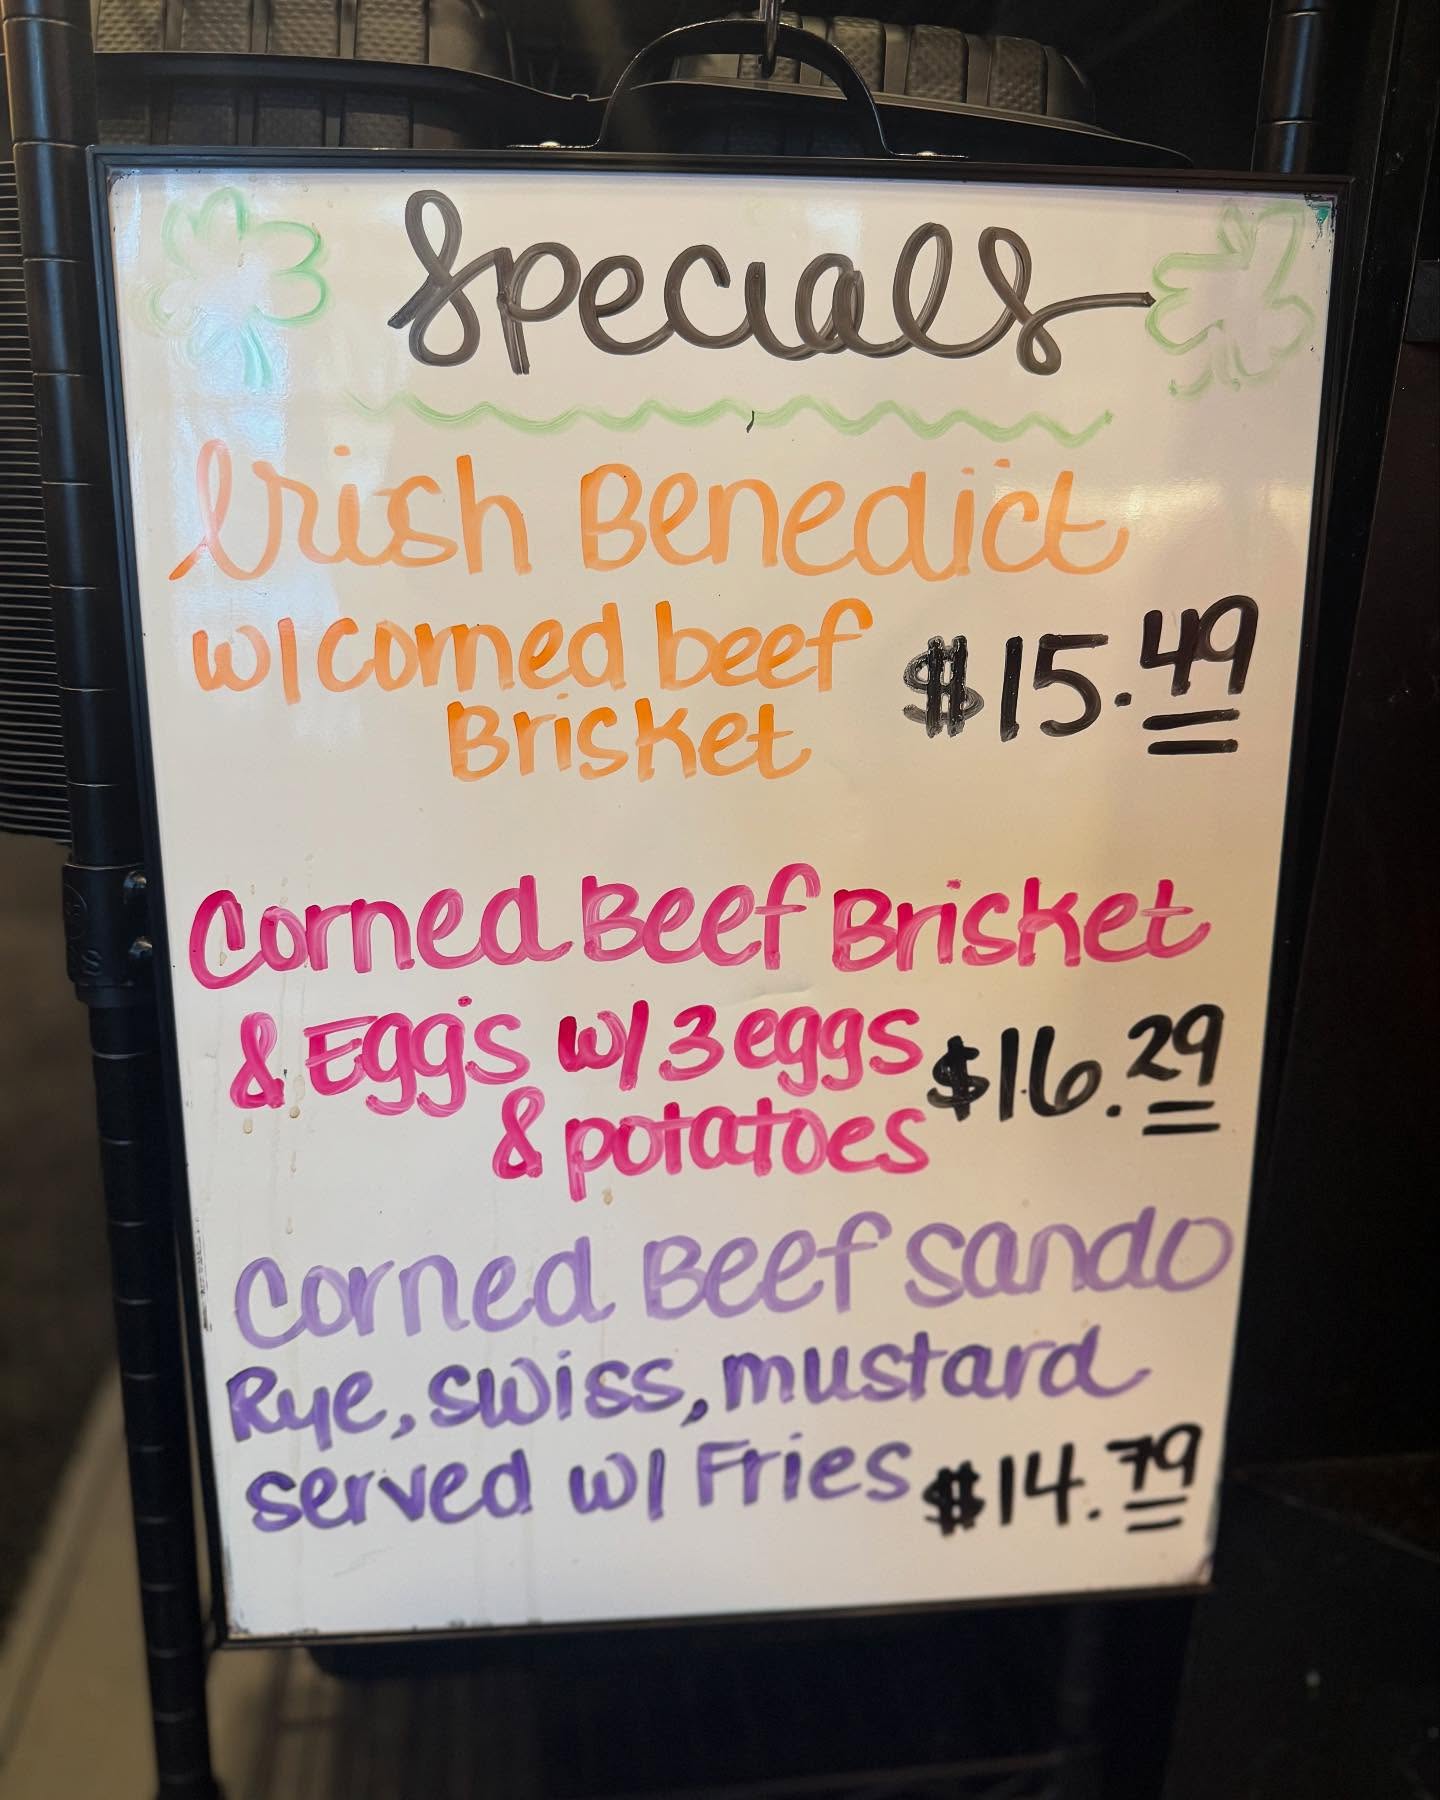 Specials
Irish Benedict
w/ corned beef $15.49
Brisket
Corned Beef Brisket
& Eggs w/ 3 eggs $16.29
& potatoes
Corned Beef Sando
Rye, swiss, mustard
served w/ Fries $14.79